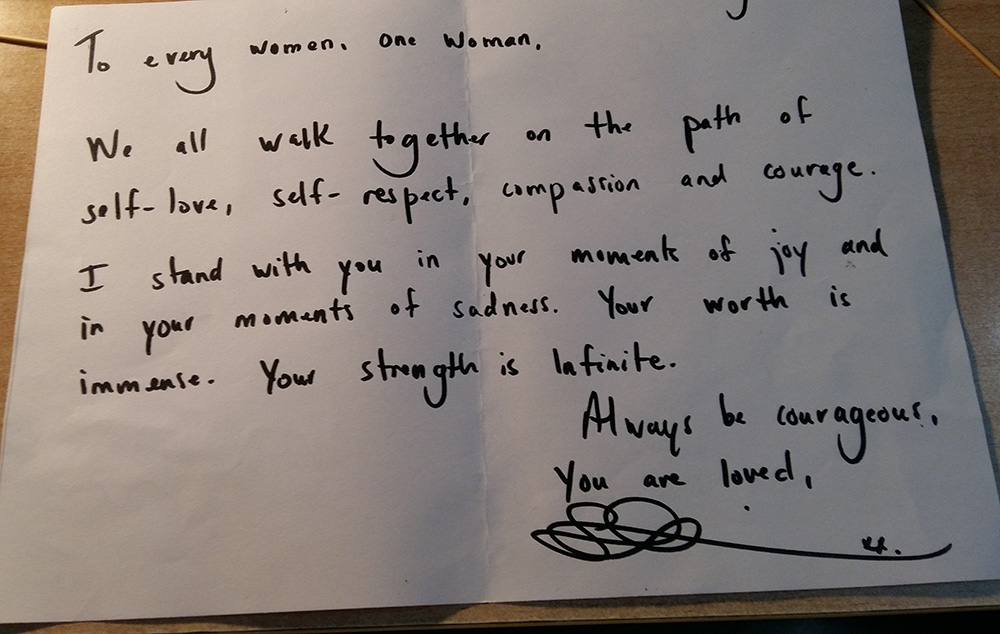 To every women. One Woman.
We all walk together on the path of
self-love, self-respect, compassion and courage.
I stand with you in your moments of joy and
in your moments of sadness. Your worth is
immense. Your strength is Infinite.
Always be courageous.
You are loved,